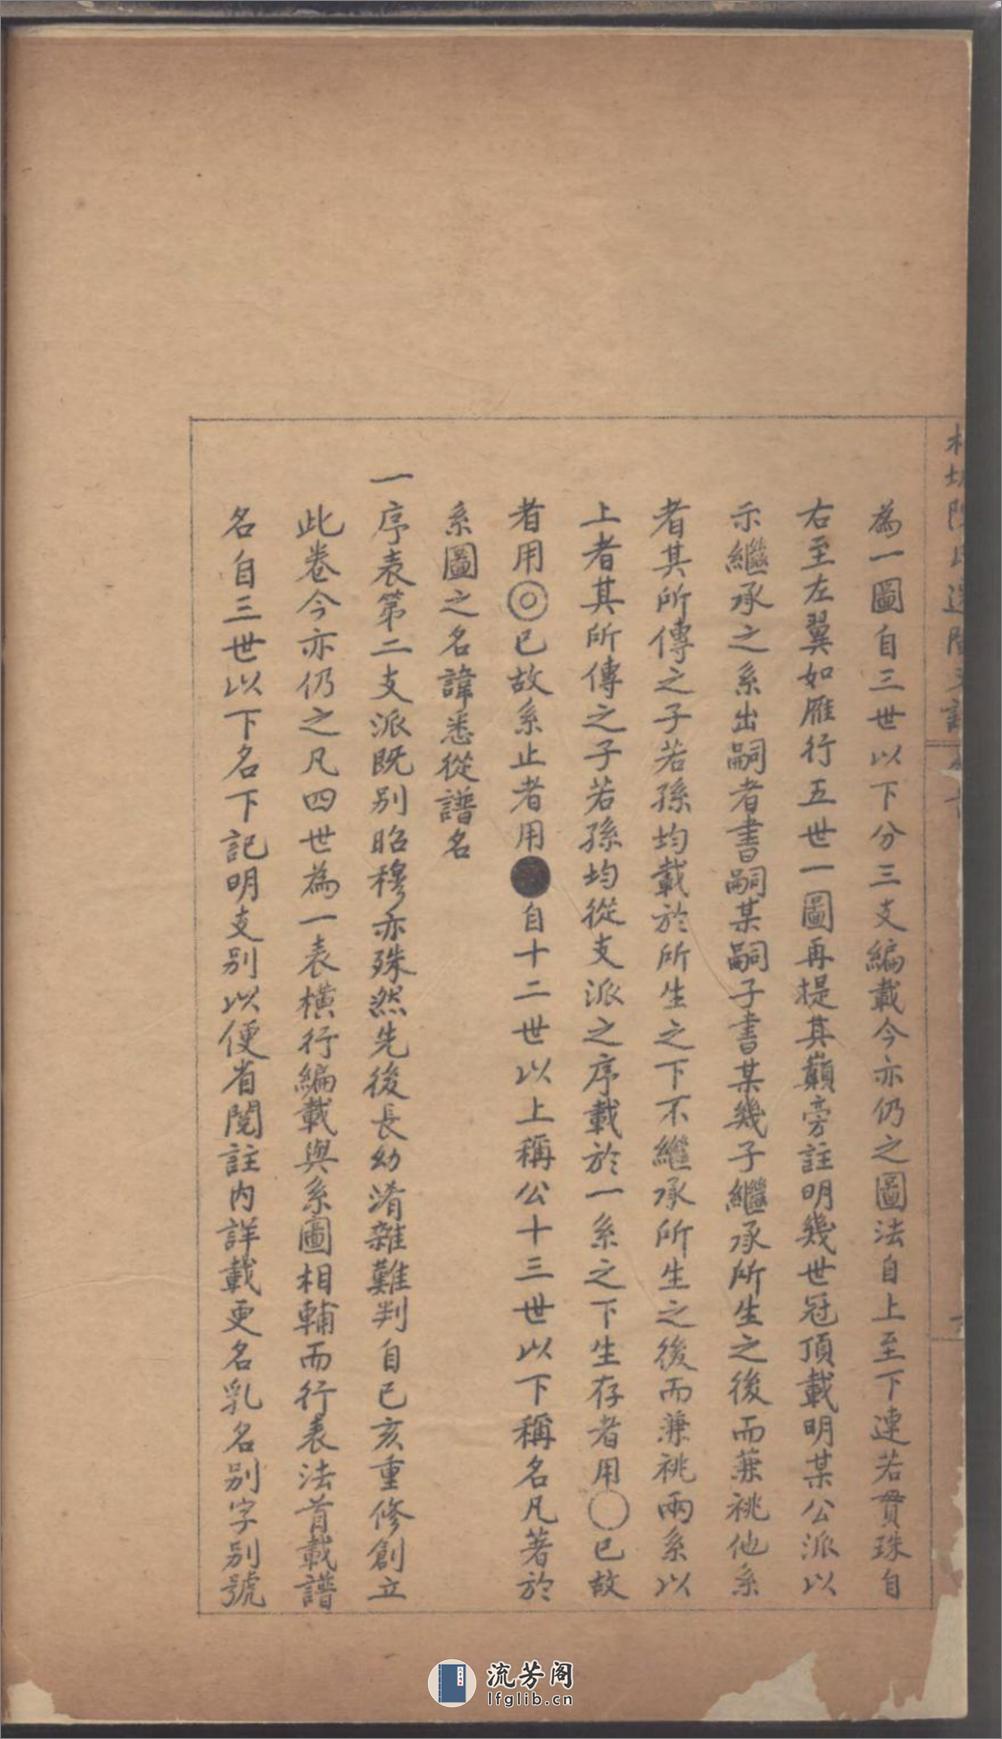 為一圖自三世以下分三支編載今亦仍之圖法自上至下連若貫珠自
右至左翼如雁行五世一圖再提其巔旁註明幾世冠頂載明某公派以
示繼承之系出嗣者書嗣某嗣子書某幾子繼承所生之後而兼祧他系
者其所傳之子若孫均載於所生之下不繼承所生之後而兼祧兩系以
上者其所傳之子若孫均從支派之序載於一系之下生存者用○已故
者用◎已故系止者用●自十二世以上稱公十三世以下稱名凡著於
系圖之名諱悉從譜名
一序表第二支派既別昭穆亦殊然先後長幼淆雜難判自己亥重修創立
此卷今亦仍之凡四世為一表橫行編載與系圖相輔而行表法首載譜
名自三世以下名下記明支別以便省閱註內詳載更名乳名別字別號
流芳阁
lfglib.cn